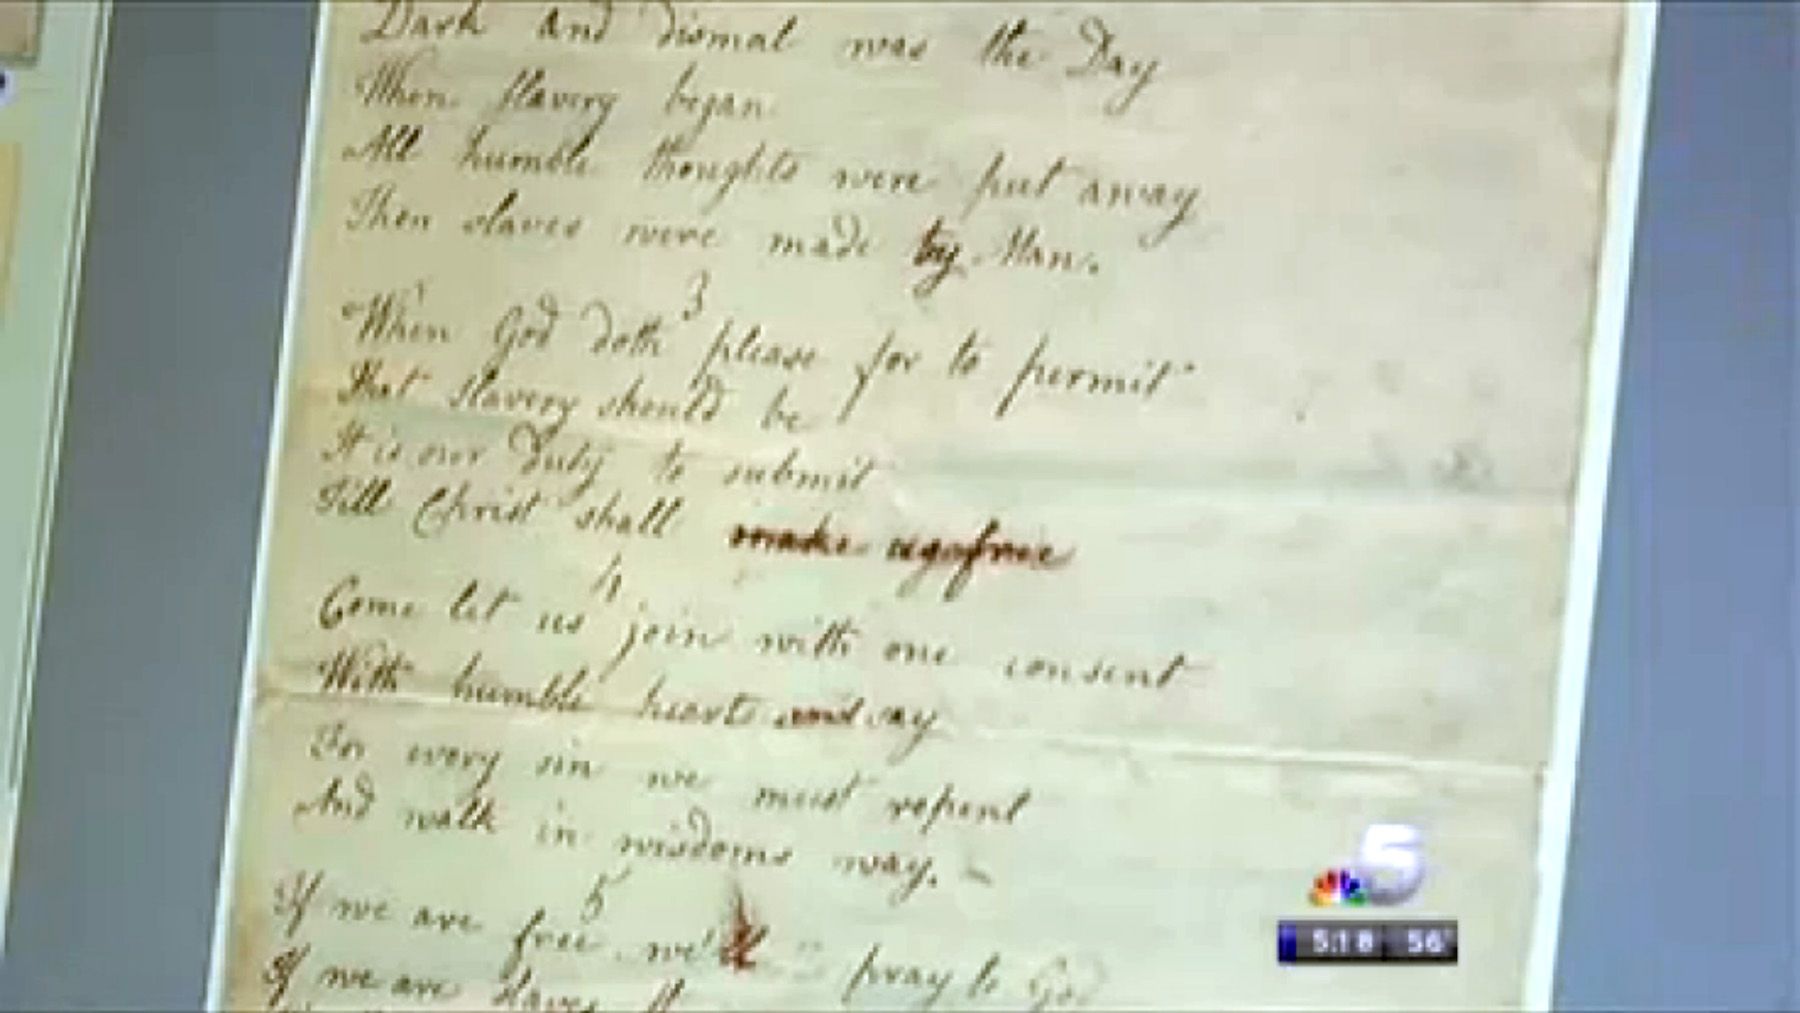 Dark and dismal was the Day
When slavery began
All humble thoughts were put away
Then slaves were made by Man.
3
When God doth please for to permit
That slavery should be
It is our duty to submit
Till Christ shall make us free
4
Come let us join with one consent
With humble hearts and say
For every sin we must repent
And walk in wisdoms way.
5
If we are free we'll pray to God
If we are slaves
5
5:18 56°